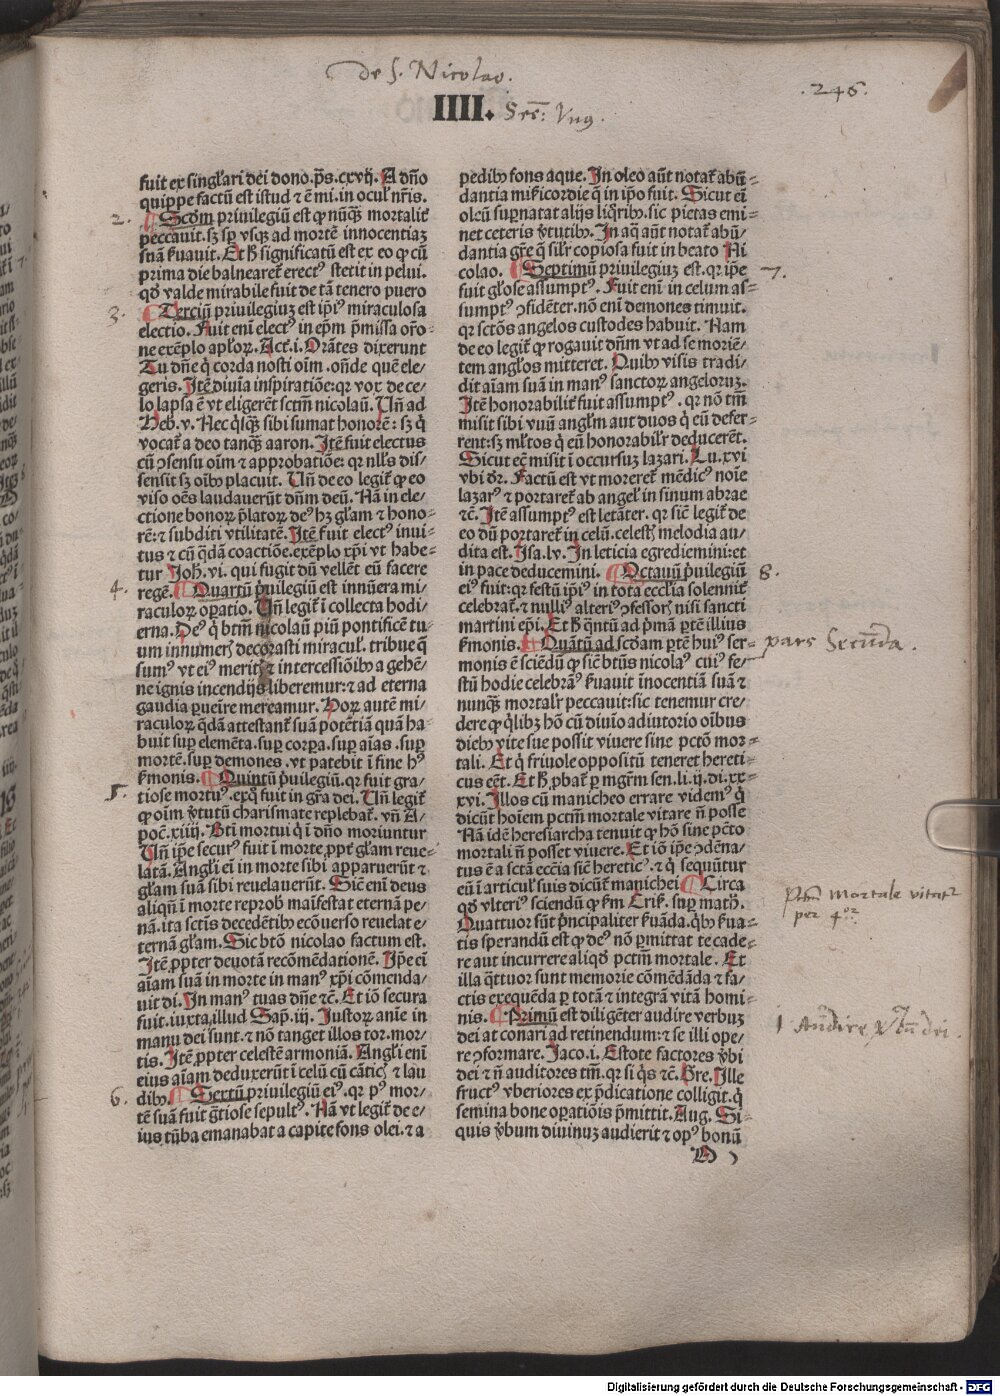 de s. Nicolao.
IIII. 
.246.
fuit ex singl'ari dei dono. ps. cxvij. A dño
quippe factũ est istud ⁊ ẽ mi. in ocul' nr̃is.
2. Scd̃m priuilegiũ est ꝙ nũqꝫ mortalit᷑
peccauit. sꝫ sp̱ vsqꝫ ad mortẽ innocentiaꝫ
suã ẜuauit. Et h̕ significatũ est ex eo ꝙ cũ
prima die balnearet᷑ erectꝰ stetit in pelui.
qd̕ valde mirabile fuit de tã tenero puero
3. Terciũ priuilegiuꝫ est ip̃iꝰ miraculosa
electio. Fuit eni electꝰ in ep̃m p̃missa or̃o-
ne exẽplo apl'oꝝ. Act᷑. i. Orãtes dixerunt
Tu dñe q̇ corda nosti oĩm. oñde quẽ ele/
geris. Itẽ diuĩa inspiratiõe: qꝛ vox de ce/
lo lapsa ẽ vt eligerẽt sctm̃ nicolaũ. Vñ ad
Heb. v. Nec q̇sqꝫ sibi sumat honorẽ: sꝫ q̇
vocat᷑ a deo tanqꝫ aaron. Itẽ fuit electus
cũ ꝯsensu oĩm ⁊ approbatiõe: qꝛ nll's dis/
sensit sꝫ oĩbꝰ placuit. Vñ de eo legit᷑ ꝙ eo
viso oẽs laudauerũt dñm deũ. Nã in ele/
ctione bonoꝝ p̃latoꝝ deꝰ hꝫ gl'am ⁊ hono-
rẽ: ⁊ subditi vtilitatẽ. Itẽ fuit electꝰ inui-
tus ⁊ cũ q̃dã coactiõe. exẽplo xp̃i vt habe-
tur Joh̃. vi. qui fugit dũ vellẽt eũ facere
4. regẽ. Quartũ p̕uilegiũ est innũera mi/
raculoꝝ oꝑatio. Vñ legit᷑ ĩ collecta hodi/
erna. Deꝰ q̇ btm̃ nicolaũ piũ pontificẽ tu/
um innumeɼ decorasti miracul'. tribue q̃
sumꝰ vt eiꝰ merit᷑ ⁊ intercessiõibꝰ a gehẽ/
ne ignis incendijs liberemur: ⁊ ad eterna
gaudia ꝑueĩre mereamur. Hoꝝ autẽ mi/
raculoꝝ q̃dã attestant᷑ suã potẽtiã quã ha-
buit suꝑ elemẽta. suꝑ corꝑa. suꝑ aĩas. suꝑ
mortẽ. suꝑ demones. vt patebit ĩ fine hꝰ
5. ẜmonis. Quintũ p̕uilegiũ. qꝛ fuit gra/
tiose mortuꝰ. exq̃ fuit in gr̃a dei. Vñ legit᷑
ꝙ oĩm v̕tutũ charismate replebat᷑. vñ A/
poc̃. xiiij. Bti mortui q̇ ĩ dño moriuntur
Vñ ip̃e securꝰ fuit ĩ morte ꝓpt᷑ gl'am reue/
latã. Angl'i ei ĩ in morte sibi apparuerũt ⁊
gl'am suã sibi reuelauerũt. Sic̃ enĩ deus
aliqñ ĩ morte reprob᷑ maĩfestat eternã pe/
nã. ita sctis decedẽtibꝰ ecõuerso reuelat e/
ternã gl'am. Sic btõ nicolao factum est.
Itẽ ꝓpter deuotã recõmẽdationẽ. Ip̃e ei
aĩam suã in morte in manꝰ xp̃i cõmenda/
uit di. In manꝰ tuas dñe ⁊c̃. Et iõ secura
fuit. iuxta illud Sap̃. iij. Justoꝝ anĩe in
manu dei sunt. ⁊ nõ tanget illos tor. mor/
tis. Itẽ ꝓpter celestẽ armoniã. Angl'i enĩ
eius aĩam deduxerũt ĩ celũ cũ cãtic̃ ⁊ lau
6. dibꝰ. Sextũ priuilegiũ eiꝰ. qꝛ pꝰ mor/
tẽ suã fuit g̃tiose sepultꝰ. Nã vt legit᷑ de e/
ius tũba emanabat a capite fons olei. ⁊ a
pedibꝰ fons aque. In oleo aũt notat᷑ abũ-
dantia mĩcordie q̃ in ip̃o fuit. Sicut ei
oleũ suꝑnatat alijs liq̇ribꝰ. sic pietas emi-
net ceteris v̕tutibꝰ. In aq̃ aũt notat᷑ abũ/
dantia gr̃e q̃ sil'r copiosa fuit in beato Ni
colao. Septimũ priuilegiuꝫ est. qꝛ ip̃e 7.
fuit gl'ose assumptꝰ. Fuit enĩ in celum as-
sumptꝰ ꝯfidẽter. nõ enĩ demones timuit.
qꝛ sctõs angelos custodes habuit. Nam
de eo legit᷑ ꝙ rogauit dñm vt ad se moriẽ-
tem angl'os mitteret. Quibꝰ visis tradi/
dit aĩam suã in manꝰ sanctoꝝ angeloruꝫ.
Itẽ honorabilit᷑ fuit assumptꝰ. qꝛ nõ tm̃
misit sibi vnũ angl'm aut duos q̇ eũ defer-
rent: sꝫ ml'tos q̇ eũ honorabilr̕ deducerẽt.
Sicut ec̃ misit ĩ occursuꝫ lazari. Lu. xvi
vbi dr̃. Factũ est vt moreret᷑ mẽdicꝰ noĩe
lazarꝰ ⁊ portaret᷑ ab angel' in sinum abrae
⁊c̃. Itẽ assumptꝰ est letãter. qꝛ sic̃ legit᷑ de
eo dũ portaret᷑ in celũ. celest᷑ melodia au/
dita est. Isa. lv. In leticia egrediemini: et
in pace deducemini. Octauũ p̕uilegiũ 8.
eiꝰ fuit: qꝛ festũ ip̃iꝰ in tota eccl̃ia solennit᷑
celebrat᷑. ⁊ nulliꝰ alteriꝰ ꝯfessoɼ nisi sancti
martini ep̃i. Et h̕ q̃ntũ ad p̕mã ꝑtẽ illius
ẜmonis. Quãtũ ad scd̃am ꝑtẽ huiꝰ ser- pars Secunda.
monis ẽ sciẽdũ ꝙ sic̃ btũs nicolaꝰ cuiꝰ fe/
stũ hodie celebrãꝰ ẜuauit inocẽtiã suã ⁊
nunqꝫ mortalr̕ peccauit: sic tenemur cre/
dere ꝙ q̇libꝫ hõ cũ diuĩo adiutorio oĩbus
diebꝰ vite sue possit viuere sine pctõ mor-
tali. Et q̃ friuole oppositũ teneret hereti-
cus eẽt. Et h̕ ꝓbat᷑ ꝑ mgr̃m sen. li. ij. di. xx-
xvi. Illos cũ manicheo errare videmꝰ q̇
dicũt hoĩem pctm̃ mortale vitare ñ posse
Nã idẽ heresiarcha tenuit ꝙ hõ sine pctõ
mortali ñ posset viuere. Et iõ ip̃e ꝯdẽna-
tus ẽ a sctã ecc̃ia sic̃ hereticꝰ. ⁊ q̇ sequũtur
eũ ĩ articul' suis dicũt᷑ manichei Circa
qd̕ vlteriꝰ sciendũ ꝙ ẜm Crisͥ. suꝑ math̃.
Quattuor sũt p̕ncipaliter ẜuãda. q̇bꝰ ẜua-
tis sperandũ est ꝙ deꝰ nõ ꝑmittat te cade-
re aut incurrere aliqd̕ pctm̃ mortale. Et
illa q̃ttuor sunt memorie cõmẽdãda ⁊ fa-
ctis exequẽda ꝑ totã ⁊ integrã vitã homi-
nis. Primũ est diligẽter audire verbuꝫ
dei at conari ad retinendum: ⁊ se illi ope/
re ꝯformare. Jaco. i. Estote factores v̕bi
dei ⁊ ñ auditores tm̃. qꝛ si q̇s ⁊c̃. Gre. Ille
fructꝰ vberiores ex p̃dicatione colligit. q̇
semina bone oꝑatiõis p̃mittit. Aug. Si-
quis v̕bum diuinuꝫ audierit ⁊ opꝰ bonũ
mortale
per 4or
1 Audire
dei.
Digitalisierung gefördert durch die Deutsche Forschungsgemeinschaft - DFG